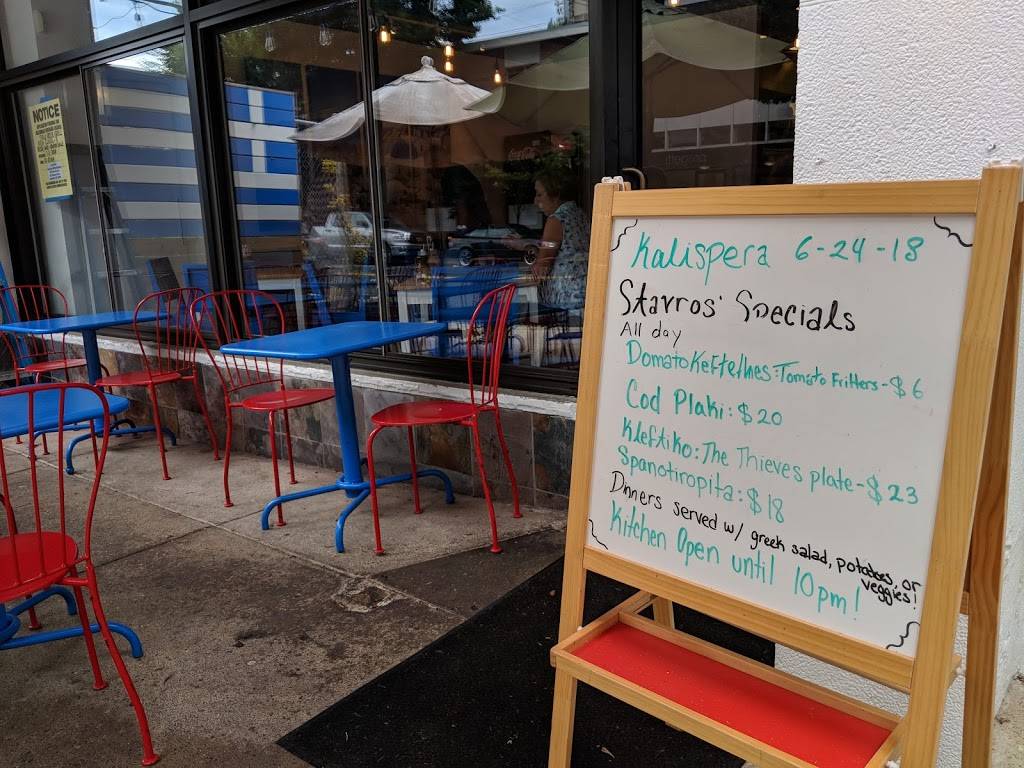 NOTICE
Kalispera 6-24-18
Stavros' Specials
All day
DomatoKeftethes: Tomato Fritters - $6
Cod Plaki: $20
Kleftiko: The Thieves plate - $23
Spanotiropita: $18
Dinners served w/ greek salad, potatoes, or
veggies!
Kitchen Open until 10pm!
Coca-Cola